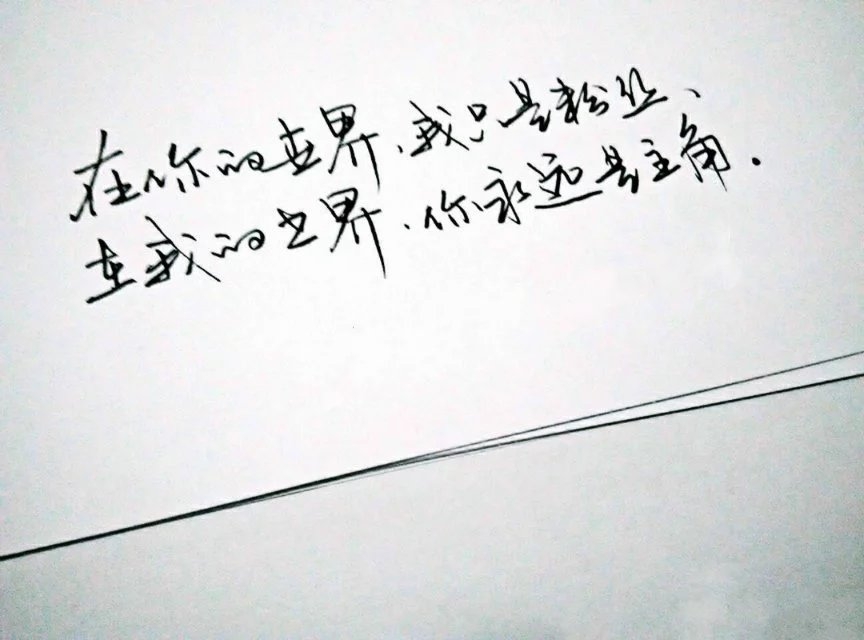 在你的世界、我只是粉丝、
在我的世界、你永远是主角.